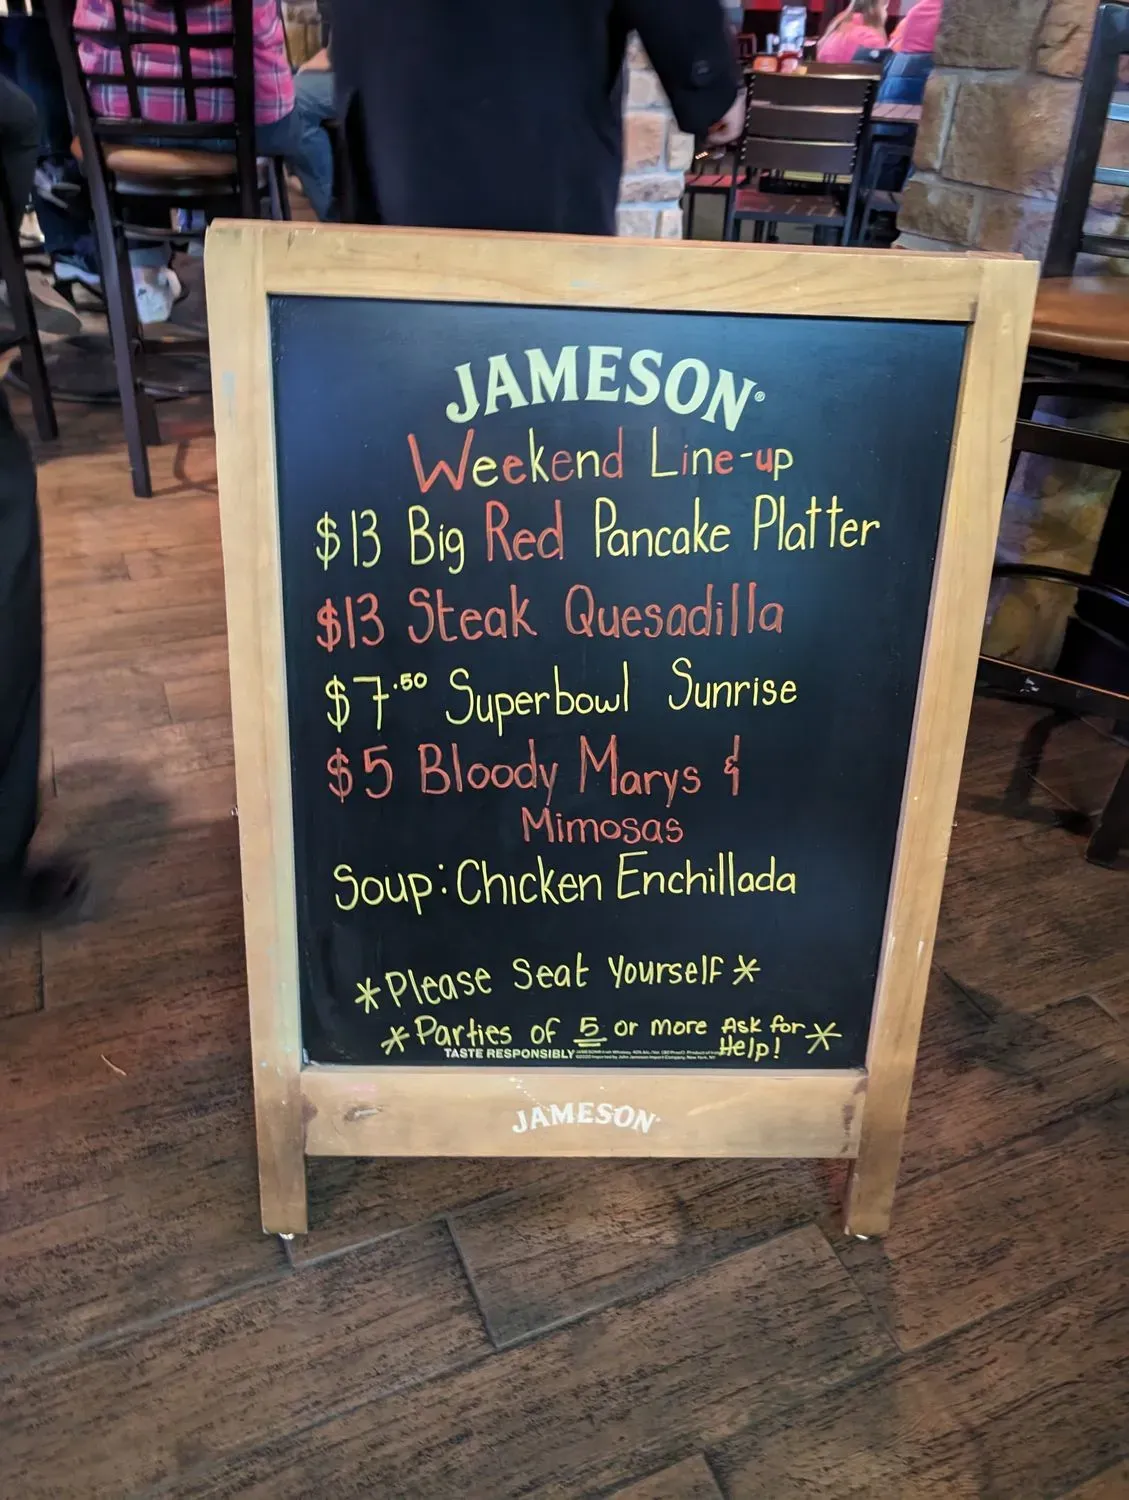 JAMESON®
Weekend Line-up
$13 Big Red Pancake Platter
$13 Steak Quesadilla
$7.50 Superbowl Sunrise
$5 Bloody Marys &
Mimosas
Soup: Chicken Enchillada
*Please Seat Yourself*
*Parties of 5 or more Ask for*
Help!
TASTE RESPONSIBLY
JAMESON